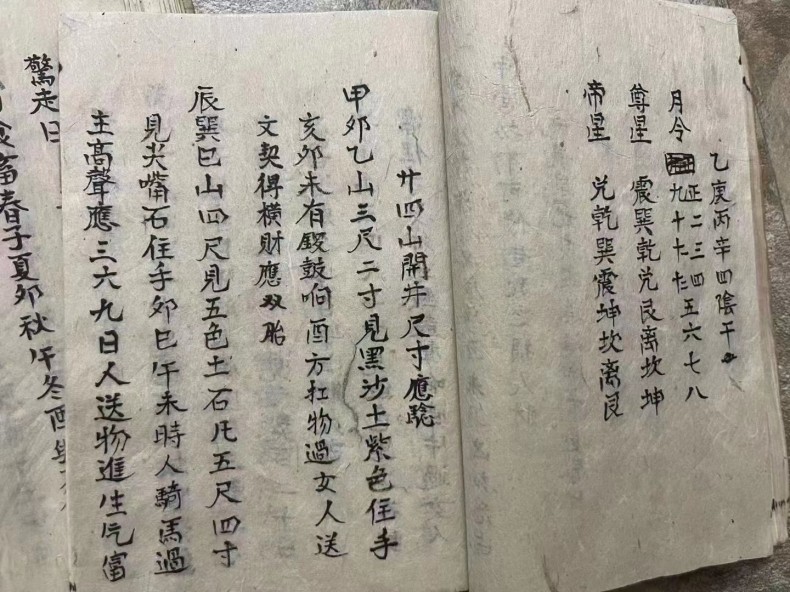 乙庚丙辛四陰干
月令 正二三四五六七八
九十十十
尊星 震巽乾兑艮离坎坤
帝星 兑乾巽震坤坎离艮
廿四山開井尺寸應騐
甲卯乙山三尺二寸見黑沙土紫色住手
亥卯未有鑼鼓响酉方扛物過女人送
文契得横財應双胎
辰巽巳山四尺見五色土石凡五尺四寸
見尖嘴石住手卯巳午未時人騎馬過
主高聲應三六九日人送物進生气富
驚走日
富春子夏卯秋午冬酉